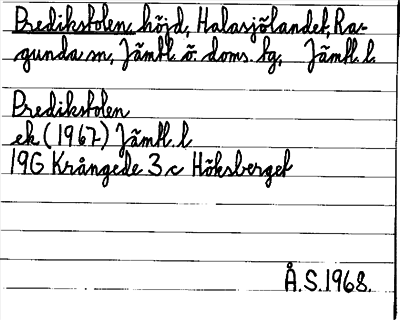 Predikstolen, höjd, Halasjölandet, Ra-
gunda sn, Jämtl. ö. doms. tg, Jämtl. l.
Predikstolen
ek (1967) Jämtl. l
19G Krångede 3 c Höksberget
Å.S. 1968.